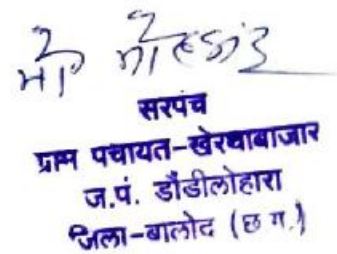 सरपंच
ग्राम पंचायत-खेरथाबाजार
ज.पं. डौंडीलोहारा
जिला-बालोद (छ.ग.)